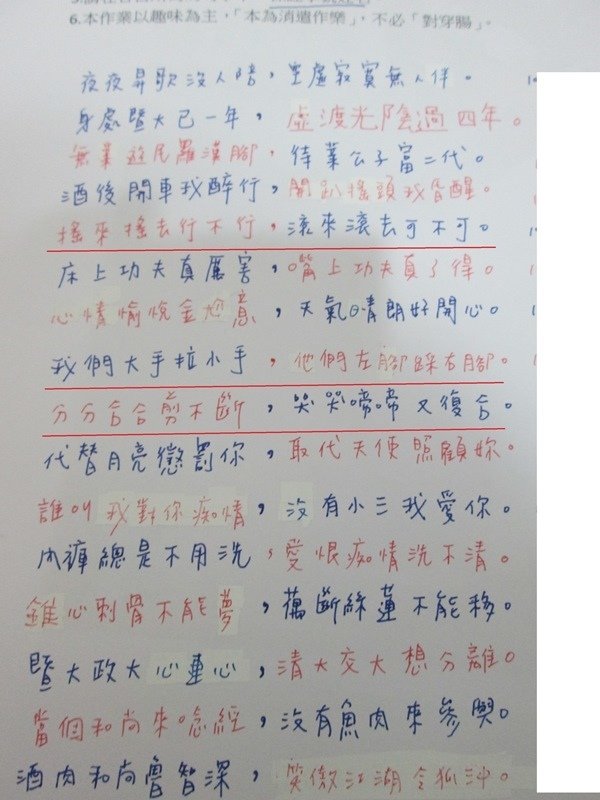 6.本作業以趣味為主,「本為消遣作樂」,不必「對穿腸」。
夜夜昇歌沒人陪,空虛寂寞無人伴。
身處暨大已一年,虛渡光陰過四年。
無業遊民羅漢腳,待業公子富二代。
酒後開車我醉行,開趴搖頭我皆醒。
搖來搖去行不行,滾來滾去可不可。
床上功夫真厲害,嘴上功夫真了得。
心情愉悅金尬意,天氣晴朗好開心。
我們大手拉小手,他們左腳踩右腳。
分分合合剪不斷,哭哭啼啼又復合。
代替月亮懲罰你,取代天使照顧妳。
誰叫我對你痴情,沒有小三我愛你。
內褲總是不用洗,愛恨痴情洗不清。
錐心刺骨不能夢,藕斷絲蓮不能移。
暨大政大心連心,清大交大想分離。
當個和尚來唸經,沒有魚肉來參與。
酒肉和尚魯智深,笑傲江湖令狐沖。